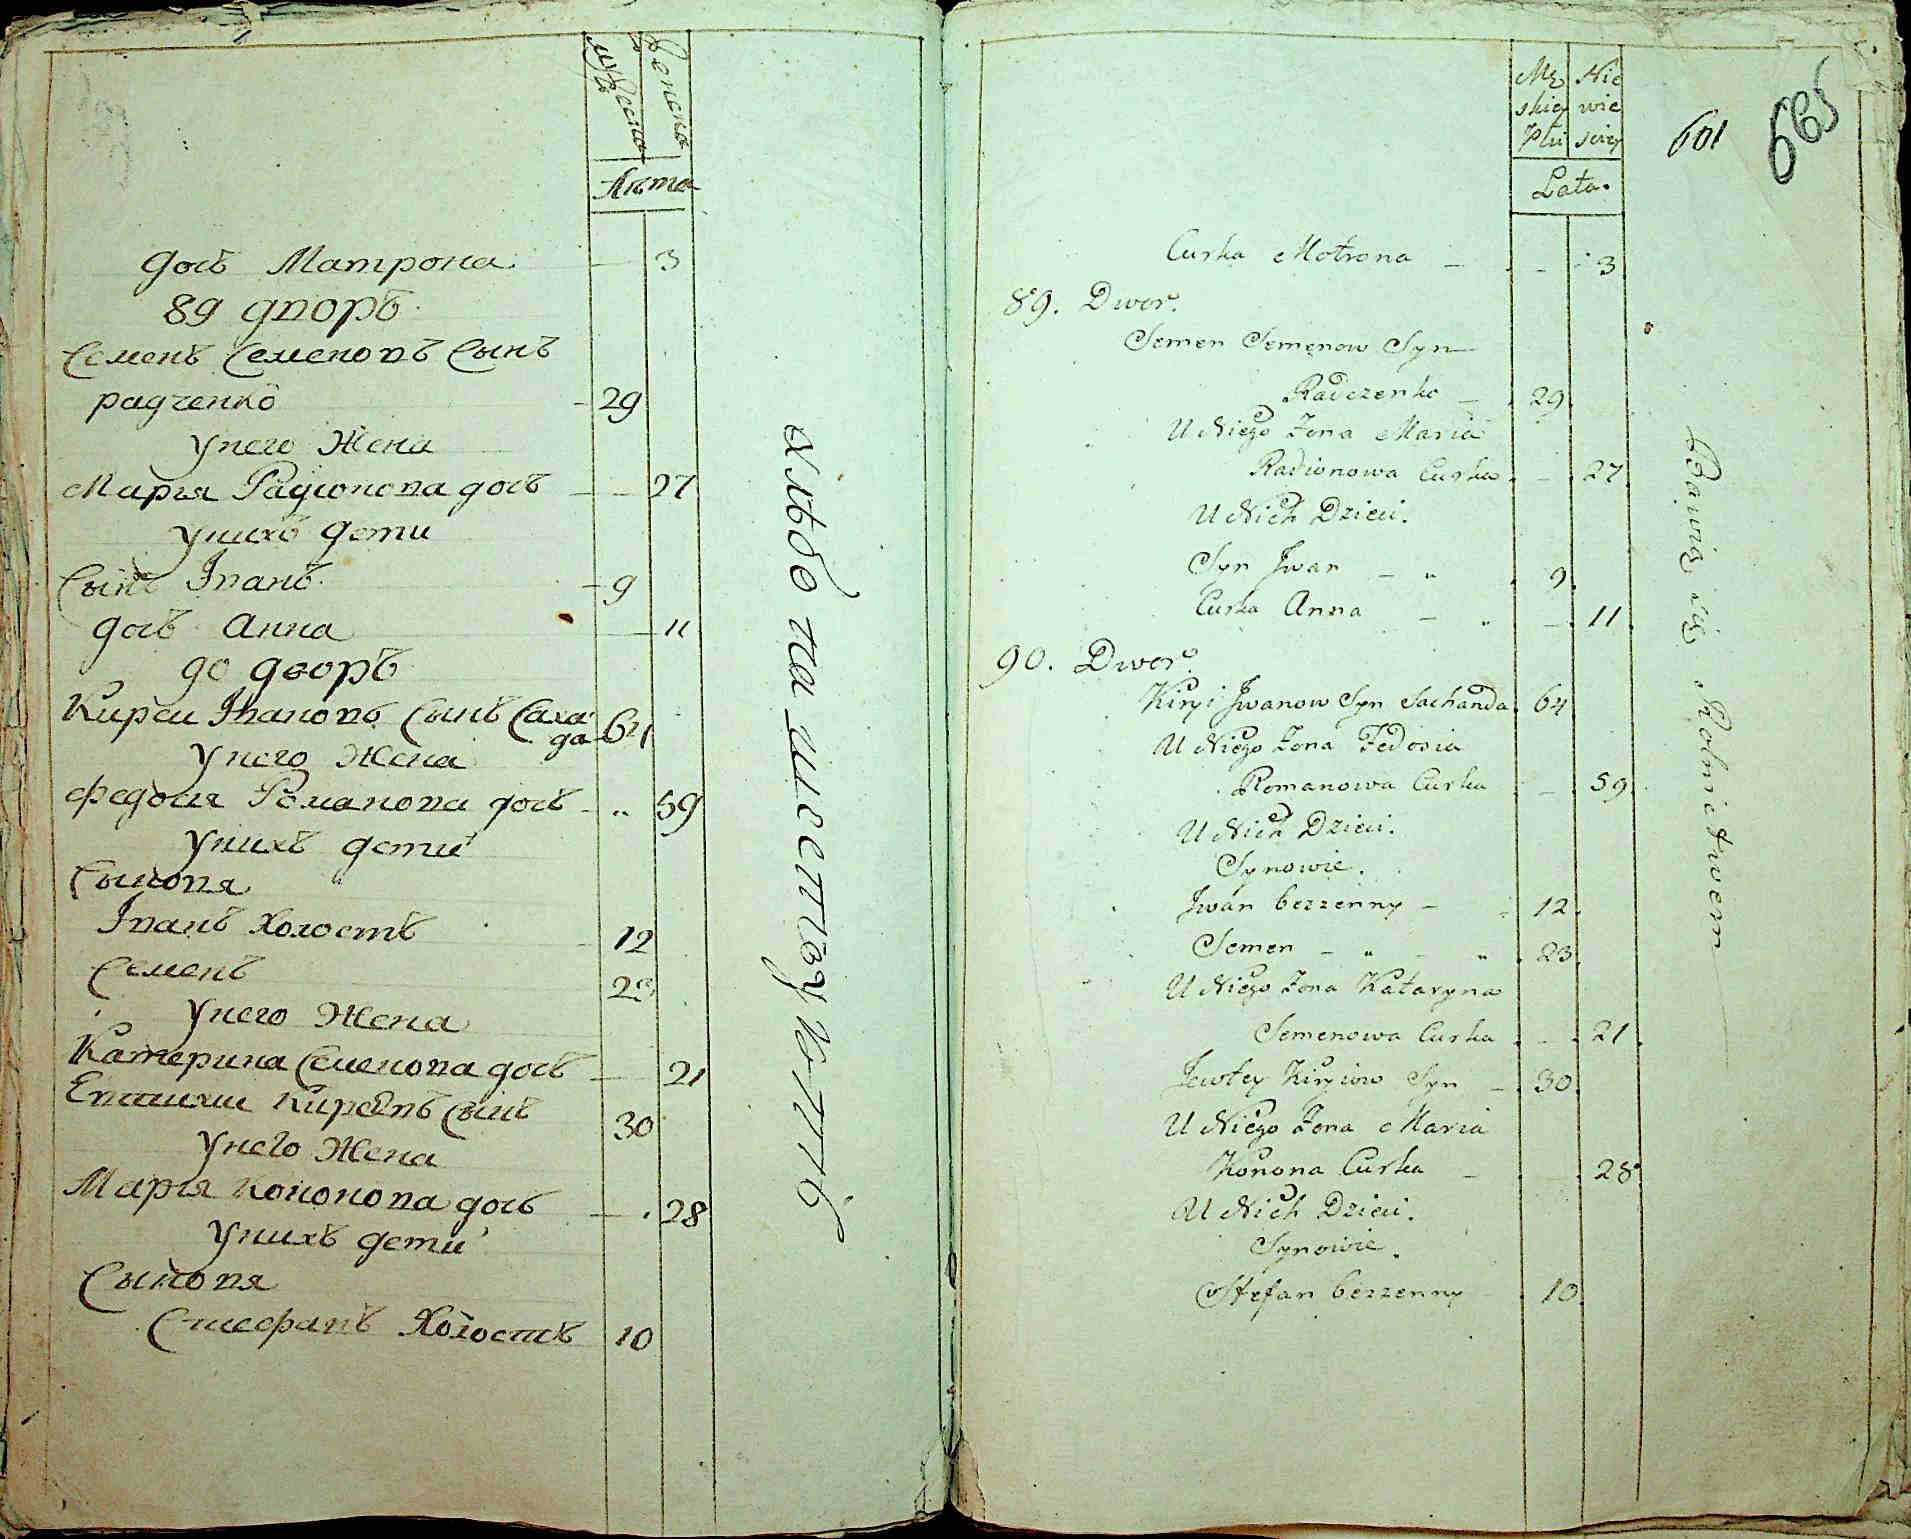 Мужеска Женска
Лѣта
дочь Матрона — 3
89 дворъ
Семенъ Семеновъ сынъ
радченко — 29
унего Жена
Марья Радионова дочь — — 27
унихъ дети
Сынъ Иванъ — 9
дочь Анна — 11
90 дворъ
Кирей Ивановъ Сынъ Саха
да 64
унего Жена
Федосья Романова дочь — „ 59
унихъ дети
Сыновя
Иванъ Холостъ 12
Семенъ 23
унего Жена
Катерина Семенова дочь — 21
Евтихий Киреевъ сынъ 30
унего Жена
Марья Кононова дочь — . 28
унихъ дети
Сыновя
Стефанъ Холостъ 10
Męskiey Płci Niewiesciey
Lata.
601
665
Curka Motrona — - 3
89. Dwor.
Semen Semenow Syn
Radczenko — 29
U Niego Zona Maria
Radionowa Curka - 27
U Nich Dzieci.
Syn Jwan — „ 9
Curka Anna — „ — 11
90. Dwor.
Kiryi Jwanow Syn Sachanda 64
U Niego Zona Fedosia
Romanowa Curka — 59
U Nich Dzieci.
Synowie.
Jwan bezzenny — 12
Semen — „ — „ 23
U Niego Zona Kataryna
Semenowa Curka - 21
Jewtey Kiryiow Syn — 30
U Niego Zona Maria
Konona Curka — — 28
U Nich Dzieci.
Synowie.
Stefan bezzenny 10
Bawią się Rolnictwem